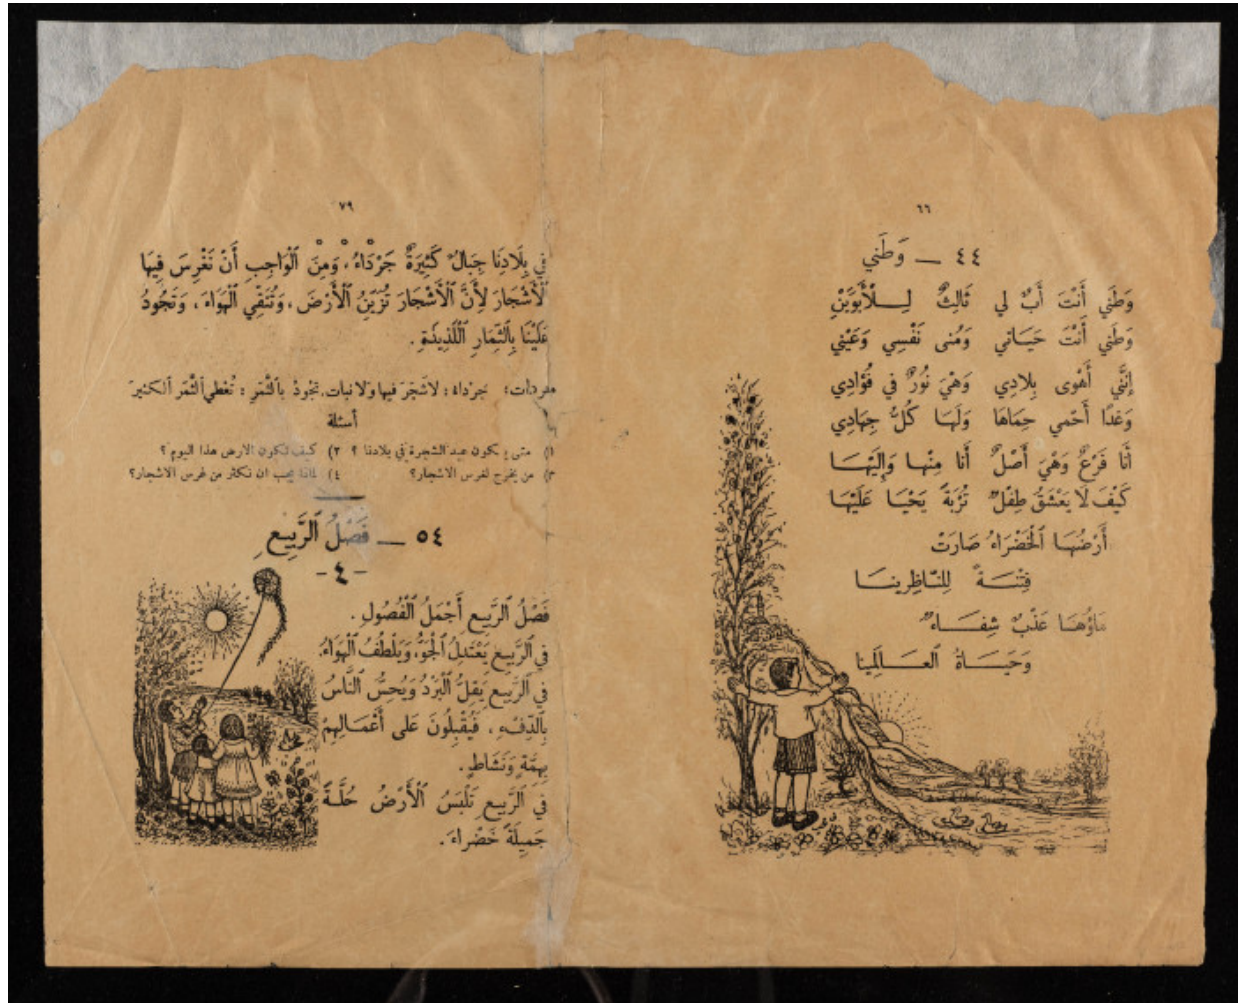 ٦٦
٤٤ ــ وَطَني
وَطَني أَنْتَ أَبٌ لي ثَالِثٌ لِــلْأَبَوَيْنِ
وَطَني أَنْتَ حَيَاتي وَمُنى نَفْسِي وَعَيْني
إِنَّني أَهْوى بِلادِي وَهْيَ نُورٌ في فُؤَادِي
وَغَدًا أَحْمي حِمَاهَا وَلَهَا كُلُّ جِهَادِي
أَنَا فَرْعٌ وَهْيَ أَصْلٌ أَنَا مِنْهَا وَإِلَيْهَا
كَيْفَ لَا يَعْشَقُ طِفْلٌ تُرْبَةً يَحْيَا عَلَيْهَا
أَرْضُهَا الْخَضْرَاءُ صَارَتْ
فِتْنَةً لِلنَّاظِرِينَا
مَاؤُهَا عَذْبٌ شِفَاءٌ
وَحَيَاةُ العَالَمِينَا
٧٩
في بِلَادِنَا جِبَالٌ كَثِيرَةٌ جَرْدَاءُ، وَمِنَ ٱلْوَاجِبِ أَنْ نَغْرِسَ فِيهَا
ٱلْأَشْجَارَ لِأَنَّ ٱلْأَشْجَارَ تُزَيِّنُ ٱلْأَرْضَ، وَتُنَقِّي ٱلْهَوَاءَ، وَتَجُودُ
عَلَيْنَا بِٱلثِّمَارِ ٱللَّذِيذَةِ.
مفردات: جَرْدَاءُ: لا شَجَرَ فيها وَلا نبات. تَجُودُ بِٱلثَّمَرِ: تُعْطي ٱلثَّمَرَ ٱلكثيرَ
أسئلة
١) متى يكون عيد الشجرة في بلادنا؟ ٢) كيف تكون الارض هذا اليوم؟
٣) من يخرج لغرس الاشجار؟ ٤) لماذا يجب ان نكثر من غرس الاشجار؟
٥٤ ــ فَصْلُ ٱلرَّبِيعِ
-٤-
فَصْلُ ٱلرَّبِيعِ أَجْمَلُ ٱلْفُصُولِ.
في ٱلرَّبِيعِ يَعْتَدِلُ ٱلْجَوُّ، وَيَلْطُفُ ٱلْهَوَاءُ
في ٱلرَّبِيعِ يَقِلُّ ٱلْبَرْدُ وَيُحِسُّ ٱلنَّاسُ
بِٱلدِّفْءِ، فَيُقْبِلُونَ عَلى أَعْمَالِهِمْ
بِهِمَّةٍ وَنَشَاطٍ.
في ٱلرَّبِيعِ تَلْبَسُ ٱلْأَرْضُ حُلَّةً
جَمِيلَةً خَضْراءَ.